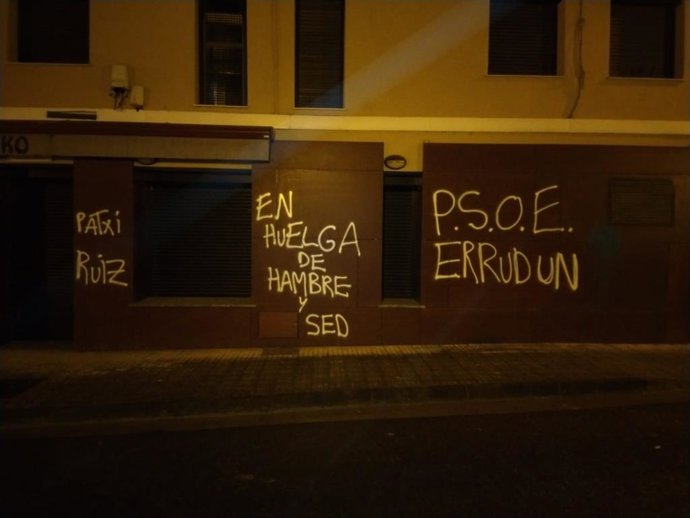 KO
PATXI
RUIZ
EN
HUELGA
DE
HAMBRE
Y
SED
P.S.O.E.
ERRUDUN